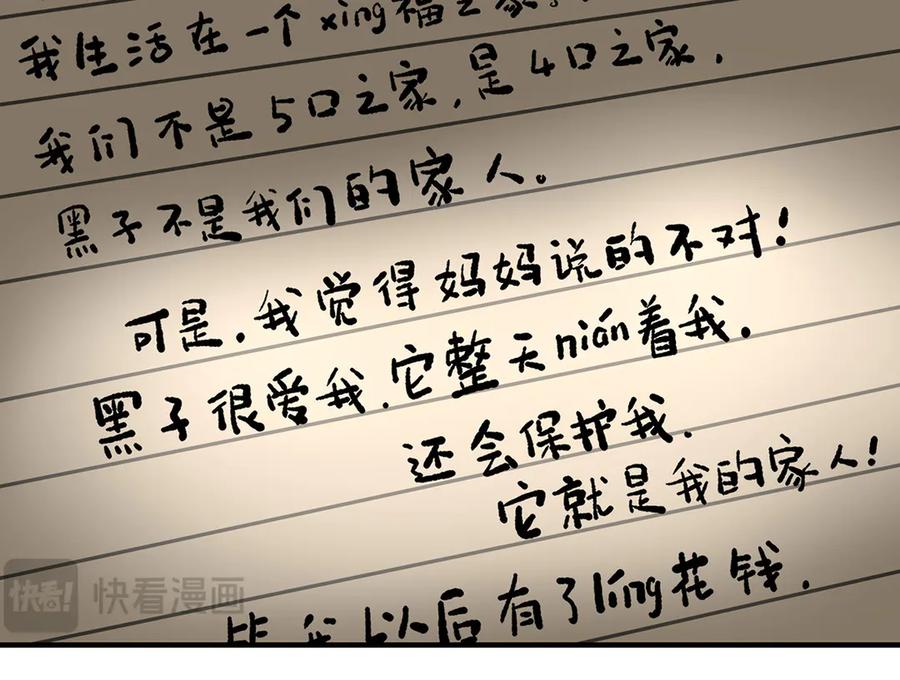 我生活在一个xing福之家。
我们不是5口之家，是4口之家，
黑子不是我们的家人。
可是，我觉得妈妈说的不对！
黑子很爱我，它整天nián着我，
还会保护我，
它就是我的家人！
我以后有了líng花钱，
快看！ 快看漫画